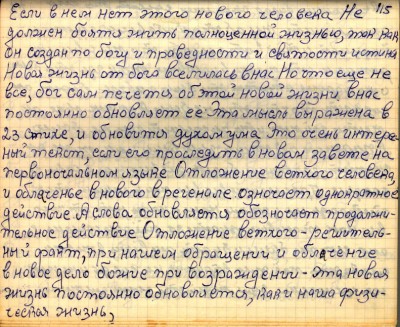 Если в нем нет этого нового человека Не 115
должен боятя жить полноценной жизнью, так как
он создан по богу и праведности и святости истина
Новая жизнь от бога вселилась в нас Но что еще не
все, бог сам печется об этой новой жизни в нас
постоянно обновляет её Эта мысль выражена в
23 стихе, и обновится духом ума Это очень интере-
ный текст, если его проследить в новам завете на
первоночальном языке Отложение ветхого человека,
и облаченье в нового в регенале означает однократное
действие А слова обновляется обозначает продалжи-
тельное действие Отложение ветхого - решитель-
ный факт, при нашем обращении и облачение
в новое дело божие при возраждении - Эта новая
жизнь постоянно обновляется, как и наша физи-
ческая жизнь,